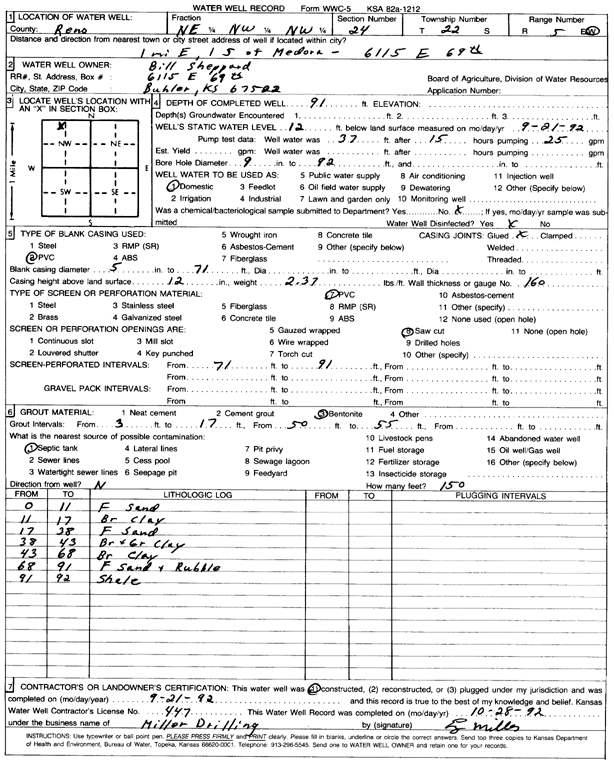 WATER WELL RECORD Form WWC-5 KSA 82a-1212
1 LOCATION OF WATER WELL: Fraction Section Number Township Number Range Number
County: Reno NE ¼ NW ¼ NW ¼ 24 T 22 S R 5 E/W
Distance and direction from nearest town or city street address of well if located within city?
1 mi E, 1 S of Medora - 6115 E 69th
2 WATER WELL OWNER: Bill Sheppard
RR#, St. Address, Box # : 6115 E 69th Board of Agriculture, Division of Water Resources
City, State, ZIP Code : Buhler, KS 67522 Application Number:
3 LOCATE WELL'S LOCATION WITH AN "X" IN SECTION BOX:
N
X
NW NE
W E
SW SE
S
1 Mile
4 DEPTH OF COMPLETED WELL 91 ft. ELEVATION:
Depth(s) Groundwater Encountered 1. ft. 2. ft. 3. ft.
WELL'S STATIC WATER LEVEL 12 ft. below land surface measured on mo/day/yr 9-21-92
Pump test data: Well water was 37 ft. after 15 hours pumping 25 gpm
Est. Yield gpm: Well water was ft. after hours pumping gpm
Bore Hole Diameter 9 in. to 92 ft., and in. to ft.
WELL WATER TO BE USED AS: 5 Public water supply 8 Air conditioning 11 Injection well
1 Domestic 3 Feedlot 6 Oil field water supply 9 Dewatering 12 Other (Specify below)
2 Irrigation 4 Industrial 7 Lawn and garden only 10 Monitoring well
Was a chemical/bacteriological sample submitted to Department? Yes No X ; If yes, mo/day/yr sample was submitted
Water Well Disinfected? Yes X No
5 TYPE OF BLANK CASING USED: 5 Wrought iron 8 Concrete tile CASING JOINTS: Glued X Clamped
1 Steel 3 RMP (SR) 6 Asbestos-Cement 9 Other (specify below) Welded
2 PVC 4 ABS 7 Fiberglass Threaded
Blank casing diameter 5 in. to 71 ft., Dia in. to ft., Dia in. to ft.
Casing height above land surface 12 in., weight 2.37 lbs./ft. Wall thickness or gauge No. 160
TYPE OF SCREEN OR PERFORATION MATERIAL: 7 PVC 10 Asbestos-cement
1 Steel 3 Stainless steel 5 Fiberglass 8 RMP (SR) 11 Other (specify)
2 Brass 4 Galvanized steel 6 Concrete tile 9 ABS 12 None used (open hole)
SCREEN OR PERFORATION OPENINGS ARE: 5 Gauzed wrapped 8 Saw cut 11 None (open hole)
1 Continuous slot 3 Mill slot 6 Wire wrapped 9 Drilled holes
2 Louvered shutter 4 Key punched 7 Torch cut 10 Other (specify)
SCREEN-PERFORATED INTERVALS: From 71 ft. to 91 ft., From ft. to ft.
From ft. to ft., From ft. to ft.
GRAVEL PACK INTERVALS: From ft. to ft., From ft. to ft.
From ft. to ft., From ft. to ft.
6 GROUT MATERIAL: 1 Neat cement 2 Cement grout 3 Bentonite 4 Other
Grout Intervals: From 3 ft. to 17 ft., From 50 ft. to 55 ft., From ft. to ft.
What is the nearest source of possible contamination: 10 Livestock pens 14 Abandoned water well
1 Septic tank 4 Lateral lines 7 Pit privy 11 Fuel storage 15 Oil well/Gas well
2 Sewer lines 5 Cess pool 8 Sewage lagoon 12 Fertilizer storage 16 Other (specify below)
3 Watertight sewer lines 6 Seepage pit 9 Feedyard 13 Insecticide storage
Direction from well? N How many feet? 150
FROM TO LITHOLOGIC LOG FROM TO PLUGGING INTERVALS
0 11 F Sand
11 17 Br Clay
17 38 F Sand
38 43 Br + Gr Clay
43 68 Br Clay
68 91 F Sand + Rubble
91 92 Shale
7 CONTRACTOR'S OR LANDOWNER'S CERTIFICATION: This water well was (1) constructed, (2) reconstructed, or (3) plugged under my jurisdiction and was
completed on (mo/day/year) 9-21-92 and this record is true to the best of my knowledge and belief. Kansas
Water Well Contractor's License No. 447 This Water Well Record was completed on (mo/day/yr) 10-28-92
under the business name of Miller Drilling by (signature)
INSTRUCTIONS: Use typewriter or ball point pen. PLEASE PRESS FIRMLY and PRINT clearly. Please fill in blanks, underline or circle the correct answers. Send top three copies to Kansas Department
of Health and Environment, Bureau of Water, Topeka, Kansas 66620-0001. Telephone: 913-296-5545. Send one to WATER WELL OWNER and retain one for your records.